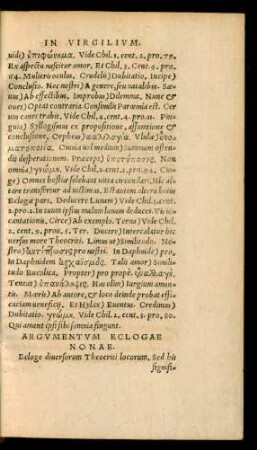 IN VIRGILIVM.
uidi) ἐπιφώνημα. Vide Chil. 1. cent. 2. pro. 79.
Ex aspectu nascitur amor. Et Chil. 2. Cent. 4. pro.
114. Mulieris oculus. Crudelis) Dubitatio. Incipe)
Conclusio. Nec nostri) A genere, seu natalibus. Sæ-
uus) Ab effectibus. Improbus) Dilemma. Nunc &
oues) Optat contraria. Consimilis Parœmia est. Cer
uum canes trahit. Vide Chil. 4. cent. pro. 11. Pin-
guia) Syllogismus ex propositione, assumtione &
conclusione. Orpheus) παλιλογία. Vlulæ) ὀνο-
ματοποιΐα. Omnia uel medium) Summum osten-
dit desperationem. Præceps) ὑποτύπωσις. Non
omnia) γνώμη. Vide Chil. 2. cent. 1. pro. 94. Cin-
ge) Omnes hostiæ solebant vitta circundari. Hîc ad
aram transfertur ad uictimas. Est autem altera huius
Eclogæ pars. Deducere Lunam) Vide Chil. 1. cent.
2. pro. 2. In tuum ipsius malum lunam deduces. Vis in
cantationis. Circe) Ab exemplo. Terna) Vide Chil.
2. cent. 9. pro. 5. Ter. Ducere) Intercalatur hic
uersus more Theocriti. Limus ut) Similitudo. No-
stro) pro nostri. In Daphnide) pro,
in Daphnidem ἀρχαϊσμός. Talis amor) Simili-
tudo Bucolica. Propter) pro propè.
Teneat) ἐπανάληψις. Has olim) largium aman-
tis. Mœris) Ab autore, & loco deinde probat effi-
caciam ueneficij. Et Hylax) Euentus. Credimus)
Dubitatio. γνώμη. Vide Chil. 2. cent. 3. pro. 80.
Qui amant ipsi sibi somnia fingunt.
ARGVMENTVM ECLOGAE
NONAE.
Ecloge diuersorum Theocriti locorum. Sed his
signifi-